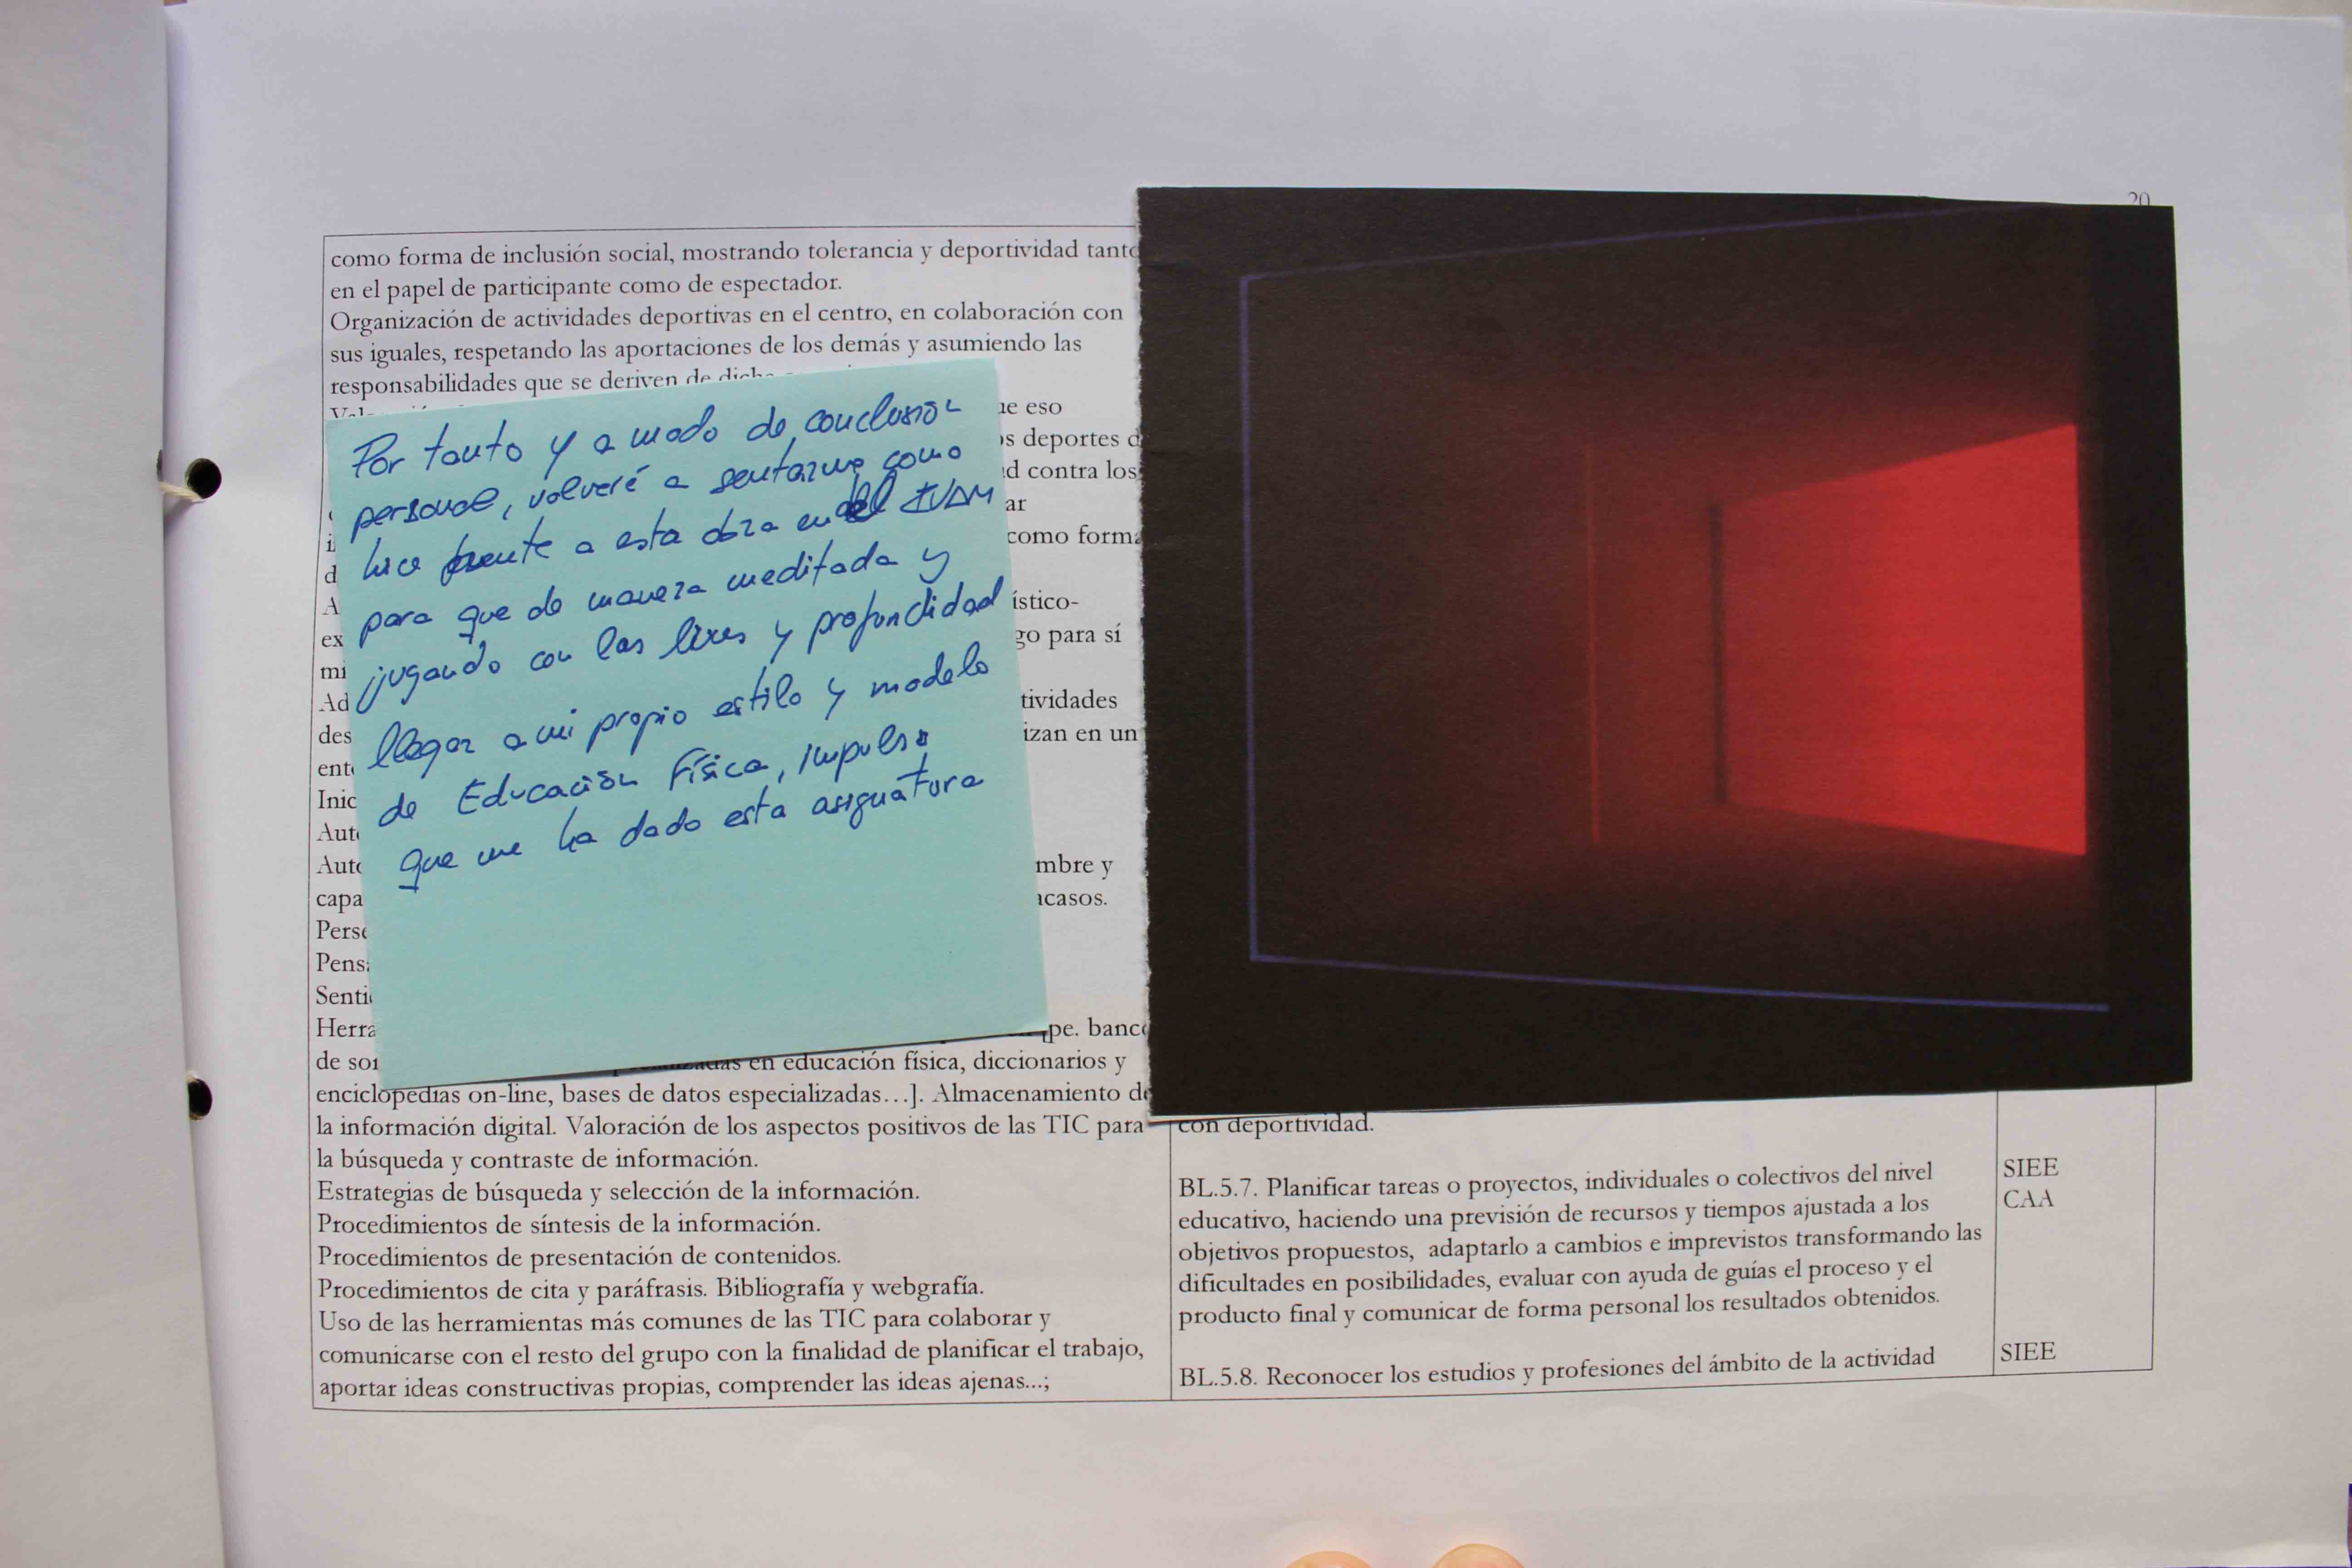 20
como forma de inclusión social, mostrando tolerancia y deportividad tanto
en el papel de participante como de espectador.
Organización de actividades deportivas en el centro, en colaboración con
sus iguales, respetando las aportaciones de los demás y asumiendo las
responsabilidades que se deriven de
Por tanto y a modo de conclusión
personal, volveré a sentarme como
hice frente a esta obra en el IVAM
para que de manera meditada y
jugando con las luces y profundidad
llegar a mi propio estilo y modelo
de Educación Física, impulso
que me ha dado esta asignatura
eso
deportes
contra los
como
para sí
en un
y
pe.
en educación física, diccionarios y
enciclopedias on-line, bases de datos especializadas…]. Almacenamiento
la información digital. Valoración de los aspectos positivos de las TIC para
la búsqueda y contraste de información.
Estrategias de búsqueda y selección de la información.
Procedimientos de síntesis de la información.
Procedimientos de presentación de contenidos.
Procedimientos de cita y paráfrasis. Bibliografía y webgrafía.
Uso de las herramientas más comunes de las TIC para colaborar y
comunicarse con el resto del grupo con la finalidad de planificar el trabajo,
aportar ideas constructivas propias, comprender las ideas ajenas...;
con deportividad.
BL.5.7. Planificar tareas o proyectos, individuales o colectivos del nivel
educativo, haciendo una previsión de recursos y tiempos ajustada a los
objetivos propuestos, adaptarlo a cambios e imprevistos transformando las
dificultades en posibilidades, evaluar con ayuda de guías el proceso y el
producto final y comunicar de forma personal los resultados obtenidos.
SIEE
CAA
BL.5.8. Reconocer los estudios y profesiones del ámbito de la actividad
SIEE